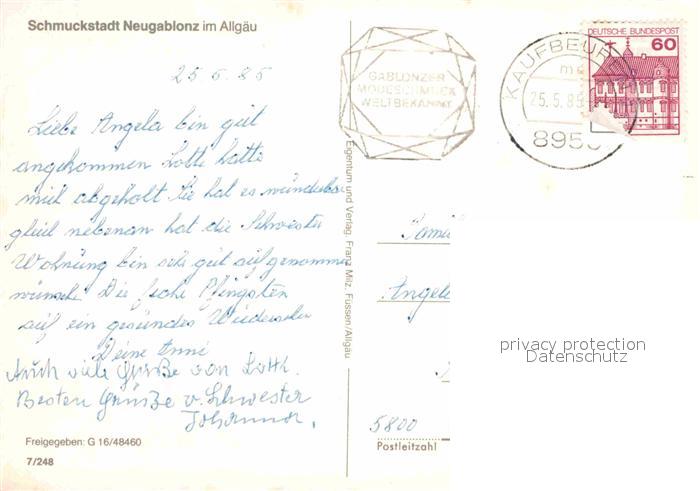 Schmuckstadt Neugablonz im Allgäu
25 5. 85
Liebe Angela bin gut
angekommen Lotte hatte
mich abgeholt. Sie hat es wunderbar
gleich nebenan hat die Schwester
Wohnung bin sehr gut aufgenommen
wünsche Dir frohe Pfingsten
auf ein gesundes Wiedersehn
Deine Anni
Auch viele Grüße von Lotti.
Besten Grüße v. Schwester
Johanna.
Freigegeben: G 16/48460
7/248
Eigentum und Verlag Franz Milz, Füssen/Allgäu
GABLONZER
MODESCHMUCK
WELTBEKANNT
KAUFBEUR
25.5.85
895
DEUTSCHE BUNDESPOST
60
Famil
Angela
5800
Postleitzahl
privacy protection
Datenschutz